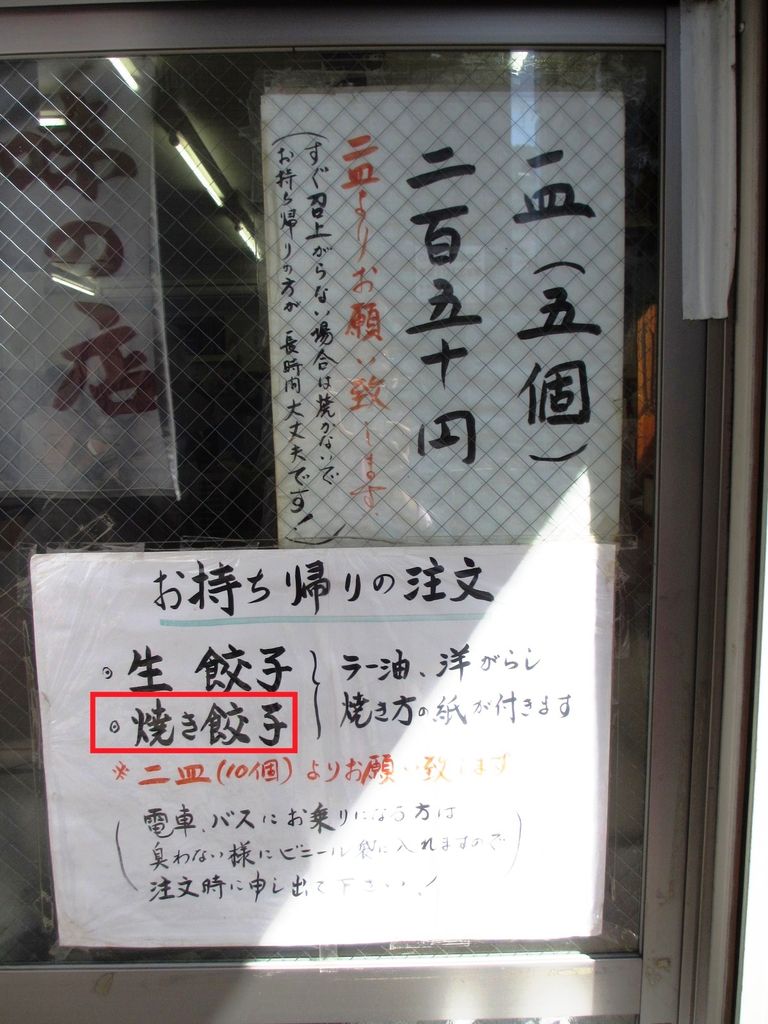 の店
一皿(五個)
二百五十円
二皿よりお願い致します。
(すぐ召上がらない場合は焼かないで
お持ち帰りの方が長時間大丈夫です!)
お持ち帰りの注文
◎生餃子
◎焼き餃子
ラー油、洋がらし
焼き方の紙が付きます
※二皿(10個)よりお願い致します
(電車、バスにお乗りになる方は
臭わない様にビニール袋に入れますので
注文時に申し出て下さい!)